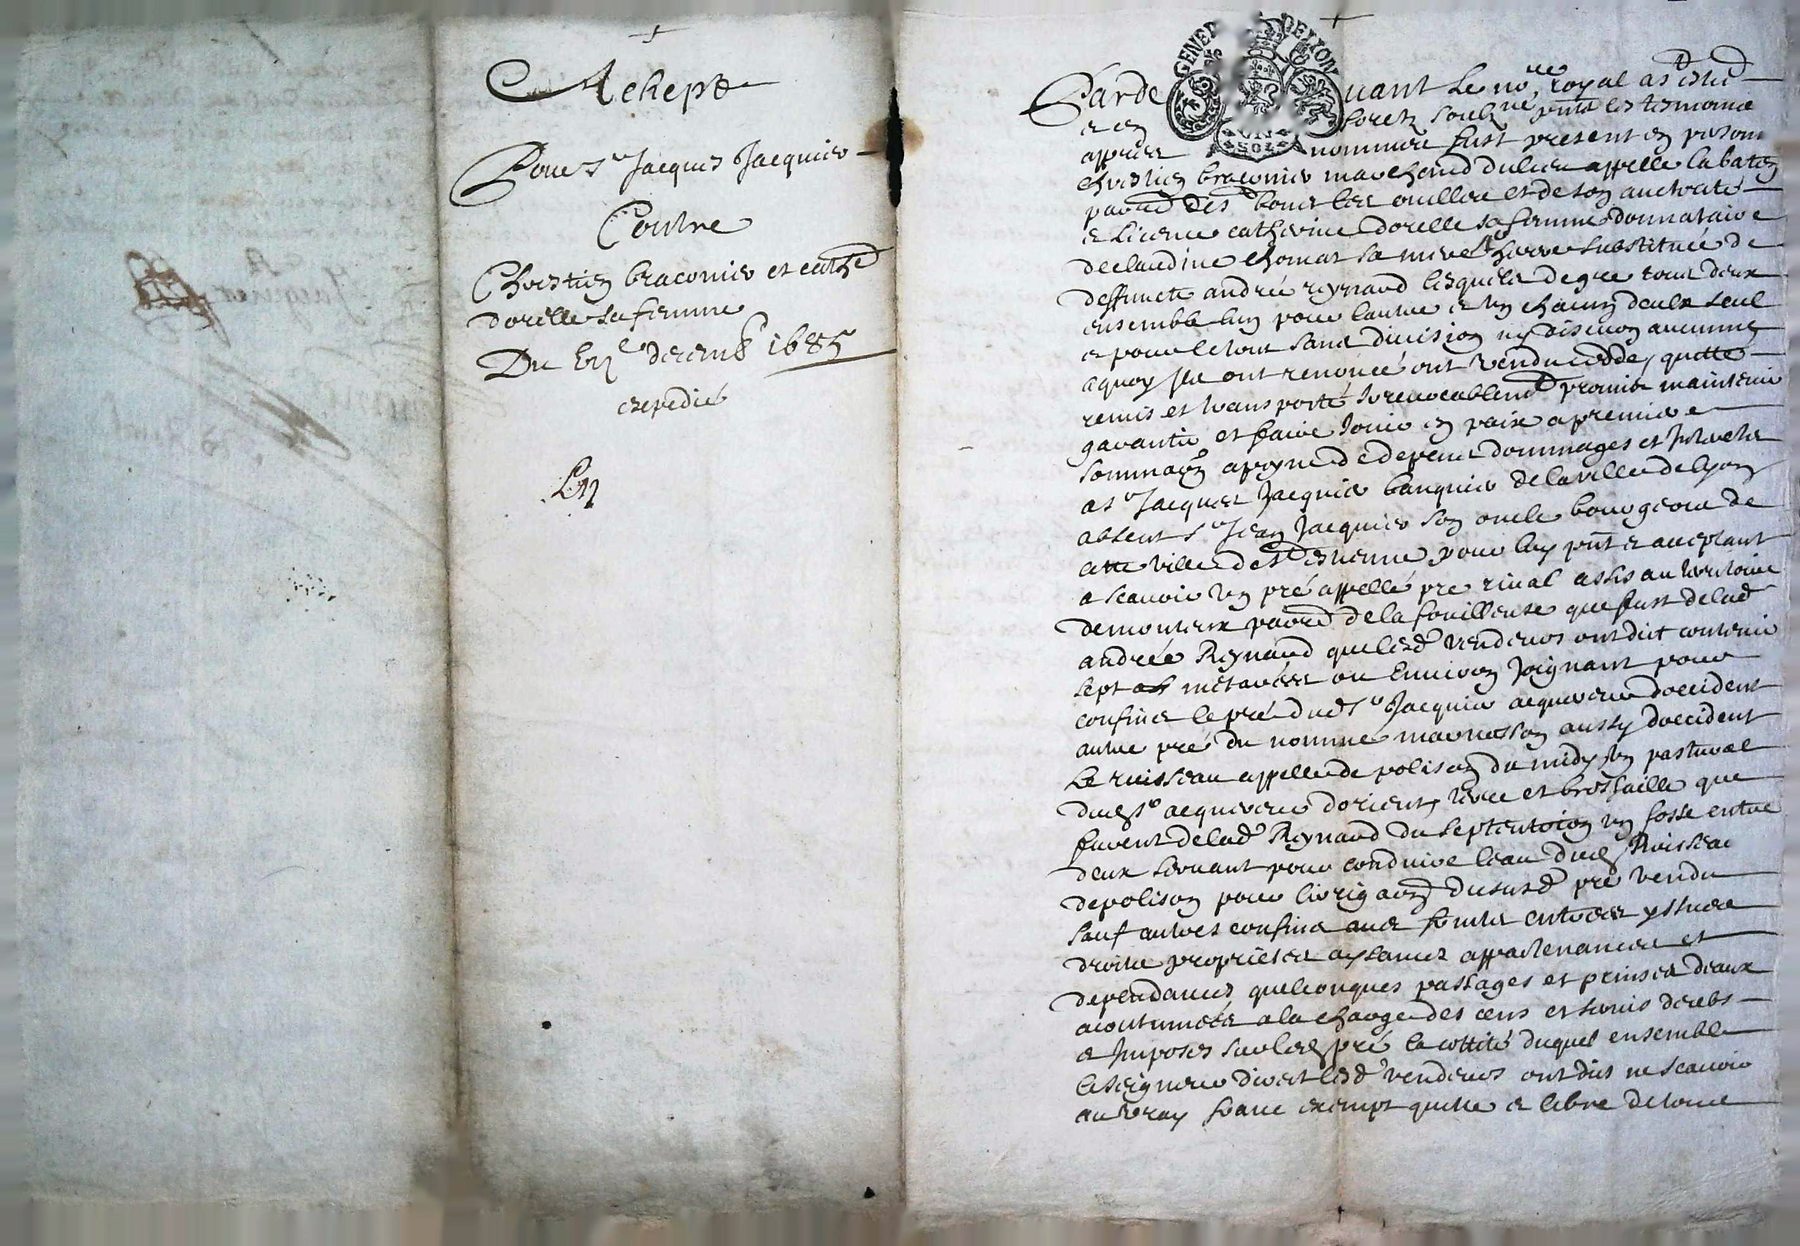 Achept
Pour Sr Jacques Jacquier
Contre
Chrestien braconier et cathe
dorelle sa femme
Du decemb 1685
expedié
GENER DE LYON
SOLS
Parde uant le nore royal a St Estne
et en foretz soubzne pnts les tesmoins
appres nommere fust present en personne
Chrestien braconier marchand du lieu appelle la bate
parred des bour les ouillere et de son aucthorité
et licence catherine dorelle sa femme donnataire
de claudine chomat sa mere herre substituée de
deffuncte andrée reynaud lesquels de gre tous deux
ensemble lun pour lautre et un chacun deulx seul
et pour le tout sans division ny discution aucunne
a quoy ils ont renoncé ont vendu cedde, quitte
remis et transporté irrevocablemt promis maintenir
garantir et faire jouir en paix a premiere
sommaon a peyne de depens dommages et interests
a sr Jacques Jacquier banquier de la ville de lyon
absent sr Jean Jacquier son oncle bourgeois de
cette ville de St Estienne pour luy pnt et acceptant
a scauoir un pré appellé pre riual assis au territoire
de monteux parred de la fouillouse que fust de lad
andrée Reynaud que lesd vendeurs ont dict contenir
sept metarées ou enuiron joignant pour
confins le pré dud sr Jacquier acquereur doccident
autre pré du nommé marnasson aussy doccident
Le ruisseau appelle de polison du midy un pastural
dud sr acquereur dorient, terre et brossaille que
furent de lad Reynaud du septentrion un fosse entre
deux seruant pour conduire leau dud Ruisseau
de polison pour lirrigaon du susd pré vendu
sauf autres confins auec ses entrees yssues
droits proprietes aysances appartenances et
dependances quelconques passages et prinses deaux
acoutumées a la charge des cens et seruis debts
et imposes sur led pré la cottité duquel ensemble
le seigneur direct lesd vendeurs ont dit ne scauoir
au vray franc exempt quitte et libre de tous